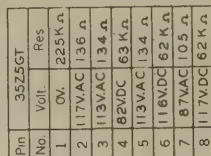 Pin 35Z5GT
No. Volt. Res
1 0V. 225KΩ
2 117V.AC 136Ω
3 113V.AC 134Ω
4 82V.DC 63KΩ
5 113V.AC 134Ω
6 116V.DC 62KΩ
7 87V.AC 105Ω
8 117V.DC 62KΩ